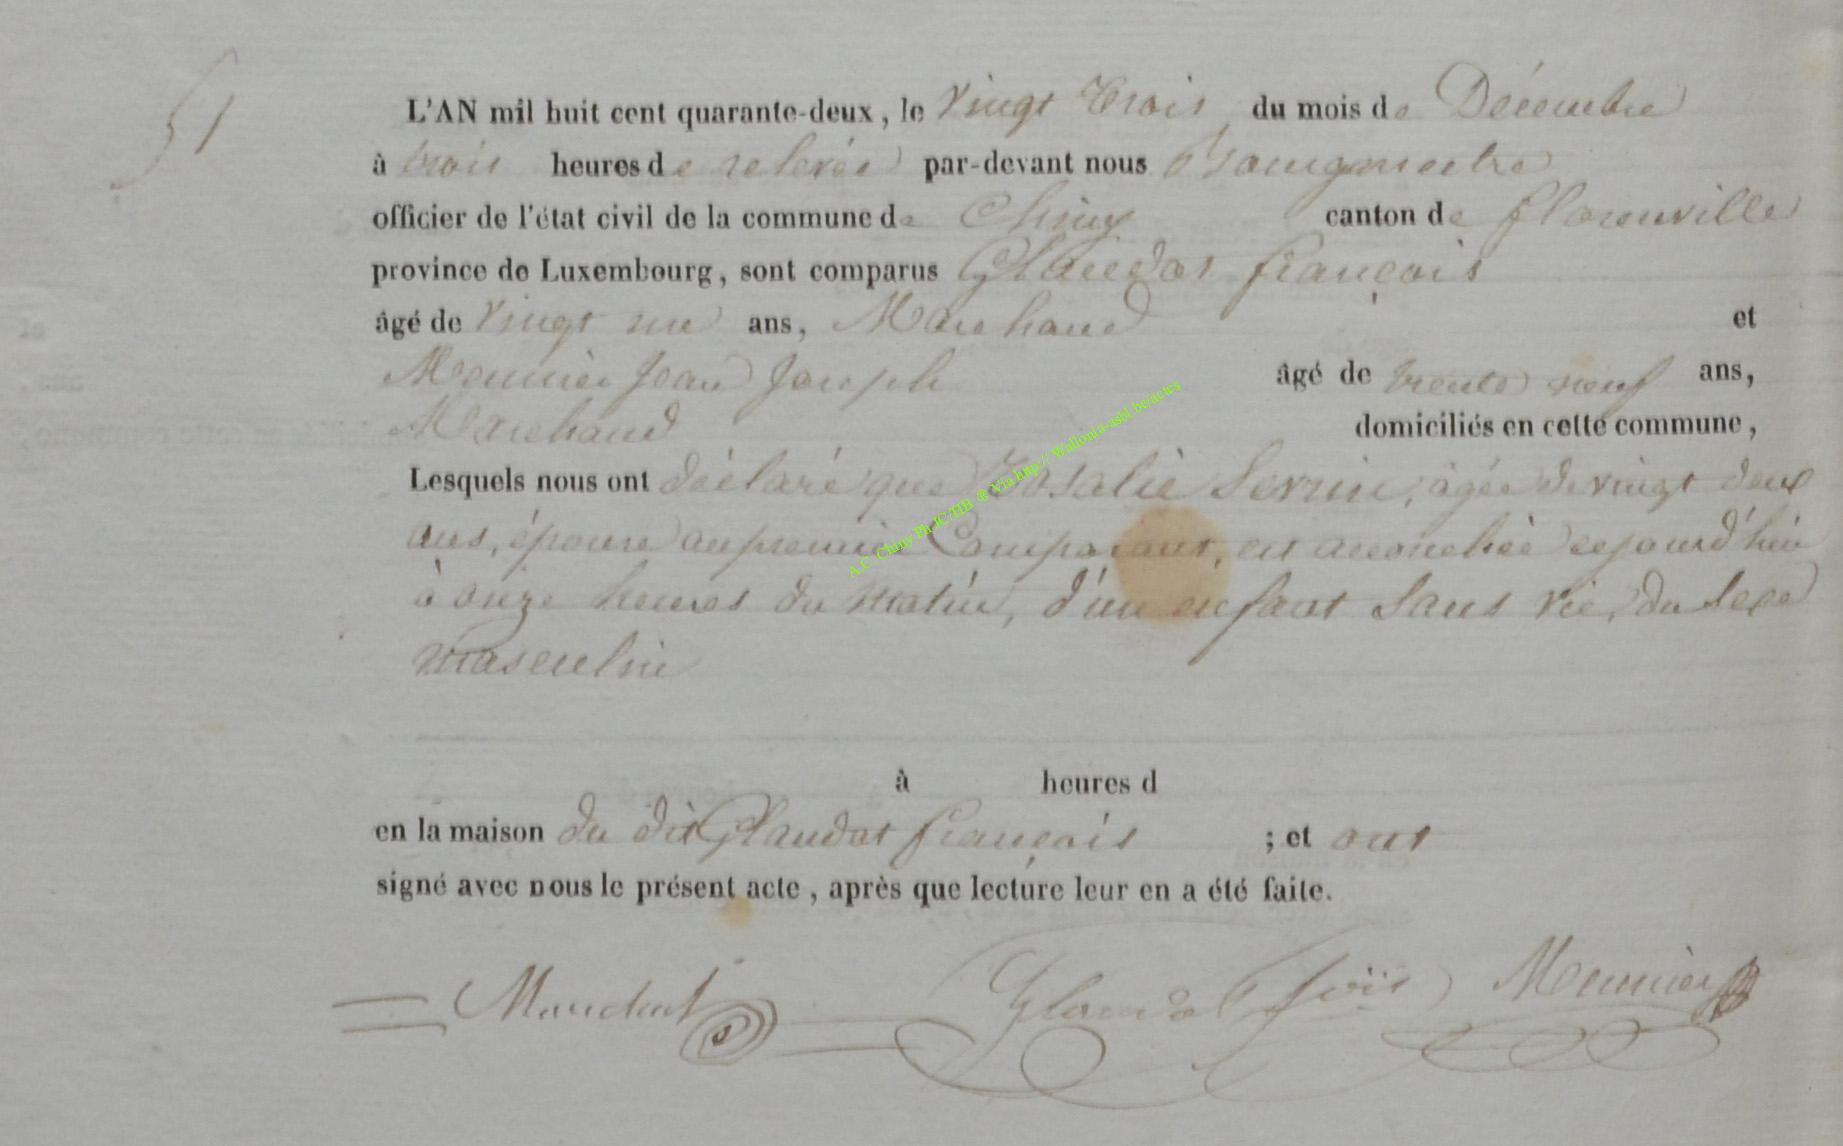 51
L'AN mil huit cent quarante-deux, le Vingt trois du mois de Décembre
à trois heures de relevée par-devant nous Bourgmestre
officier de l'état civil de la commune de Chiny canton de florenville
province de Luxembourg, sont comparus Glaudot françois
âgé de Vingt un ans, Marchand et
Meunier Jean Joseph âgé de trente neuf ans,
Marchand domiciliés en cette commune,
Lesquels nous ont déclaré que Rosalie Servin, âgée de vingt deux
ans, épouse au premier Comparant, est accouchée cejourd'hui
à onze heures du matin, d'un enfant Sans vie, du Sexe
masculin
à heures d
en la maison du dit Glaudot françois ; et ont
signé avec nous le présent acte, après que lecture leur en a été faite.
Glaudot fois Meunier